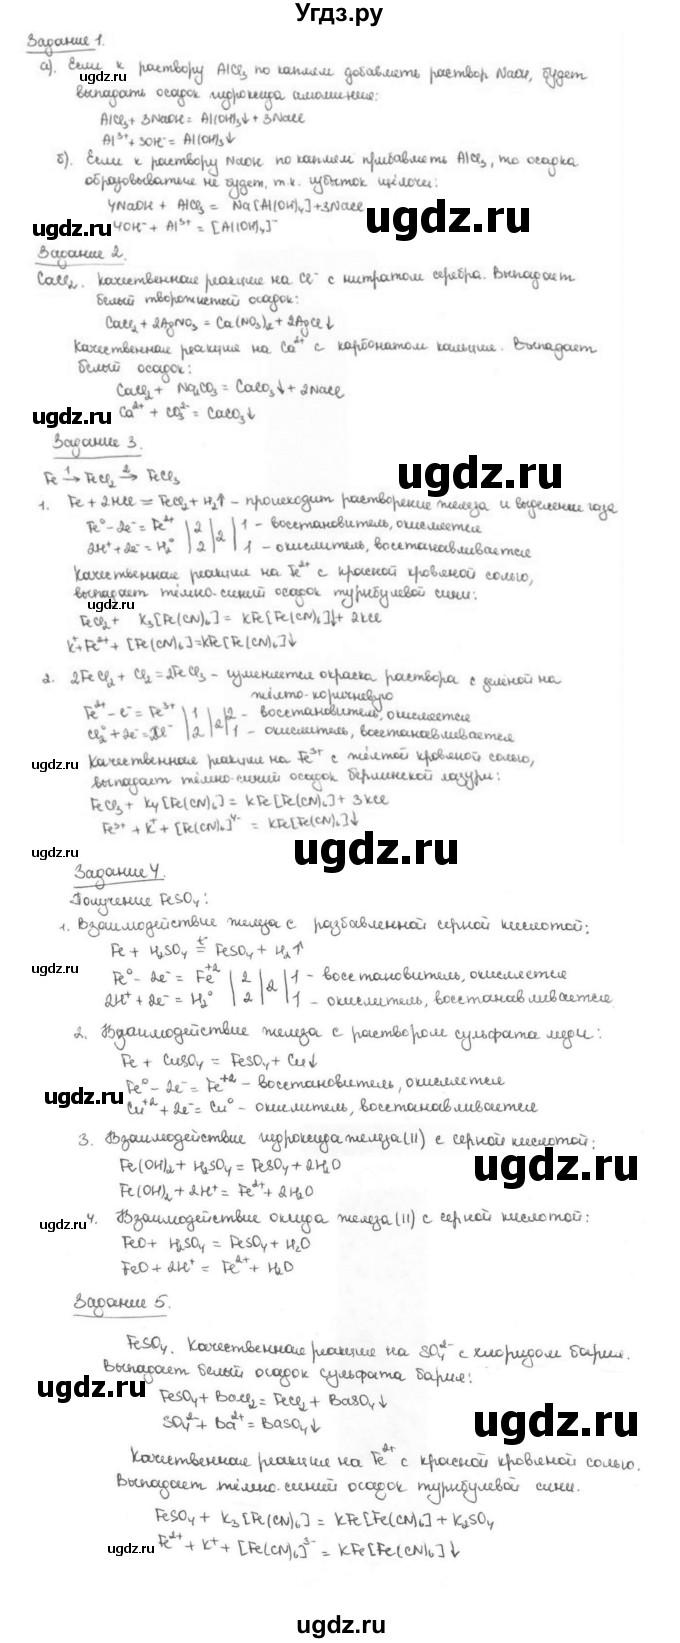 Угдз.ру
Задание 1.
а). Если к раствору AlCl₃ по каплям добавлять раствор NaOH, будет
ugdz.ru
выпадать осадок гидроксида алюминия:
AlCl₃ + 3NaOH = Al(OH)₃↓ + 3NaCl
Al³⁺ + 3OH⁻ = Al(OH)₃↓
б). Если к раствору NaOH по каплям прибавлять AlCl₃, то осадка
образовываться не будет, т.к. избыток щёлочи:
4NaOH + AlCl₃ = Na[Al(OH)₄] + 3NaCl
ugdz.ru
ugdz.ru
4OH⁻ + Al³⁺ = [Al(OH)₄]⁻
Задание 2.
CaCl₂. Качественная реакция на Cl⁻ с нитратом серебра. Выпадает
белый творожистый осадок:
CaCl₂ + 2AgNO₃ = Ca(NO₃)₂ + 2AgCl↓
Качественная реакция на Ca²⁺ с карбонатом кальция. Выпадает
белый осадок:
CaCl₂ + Na₂CO₃ = CaCO₃↓ + 2NaCl
ugdz.ru
Ca²⁺ + CO₃²⁻ = CaCO₃↓
Задание 3.
ugdz.ru
Fe 1→ FeCl₂ 2→ FeCl₃
1. Fe + 2HCl = FeCl₂ + H₂↑ - происходит растворение железа и выделение газа
Fe⁰ - 2e⁻ = Fe²⁺ | 2 | 2 | 1 - восстановитель, окисляется
2H⁺ + 2e⁻ = H₂⁰ | 2 | | 1 - окислитель, восстанавливается
Качественная реакция на Fe²⁺ с красной кровяной солью,
выпадает тёмно-синий осадок турнбулевой сини:
ugdz.ru
FeCl₂ + K₃[Fe(CN)₆] = KFe[Fe(CN)₆]↓ + 2KCl
K⁺ + Fe²⁺ + [Fe(CN)₆] = KFe[Fe(CN)₆]↓
2. 2FeCl₂ + Cl₂ = 2FeCl₃ - изменяется окраска раствора с зелёной на
жёлто-коричневую
Fe²⁺ - e⁻ = Fe³⁺ | 1 | 2 | 2 - восстановитель, окисляется
Cl₂⁰ + 2e⁻ = 2Cl⁻ | 2 | | 1 - окислитель, восстанавливается
Качественная реакция на Fe³⁺ с жёлтой кровяной солью,
ugdz.ru
выпадает тёмно-синий осадок берлинской лазури:
FeCl₃ + K₄[Fe(CN)₆] = KFe[Fe(CN)₆] + 3KCl
Fe³⁺ + K⁺ + [Fe(CN)₆]⁴⁻ = KFe[Fe(CN)₆]↓
ugdz.ru
ugdz.ru
Задание 4.
Получение FeSO₄:
1. Взаимодействие железа с разбавленной серной кислотой:
Fe + H₂SO₄ =t°= FeSO₄ + H₂↑
ugdz.ru
Fe⁰ - 2e⁻ = Fe⁺² | 2 | 2 | 1 - восстановитель, окисляется
2H⁺ + 2e⁻ = H₂⁰ | 2 | | 1 - окислитель, восстанавливается
2. Взаимодействие железа с раствором сульфата меди:
Fe + CuSO₄ = FeSO₄ + Cu↓
Fe⁰ - 2e⁻ = Fe⁺² - восстановитель, окисляется
ugdz.ru
Cu⁺² + 2e⁻ = Cu⁰ - окислитель, восстанавливается
3. Взаимодействие гидроксида железа (II) с серной кислотой:
Fe(OH)₂ + H₂SO₄ = FeSO₄ + 2H₂O
ugdz.ru
Fe(OH)₂ + 2H⁺ = Fe²⁺ + 2H₂O
ugdz.ru
4. Взаимодействие оксида железа (II) с серной кислотой:
FeO + H₂SO₄ = FeSO₄ + H₂O
FeO + 2H⁺ = Fe²⁺ + H₂O
Задание 5.
FeSO₄. Качественная реакция на SO₄²⁻ с хлоридом бария.
Выпадает белый осадок сульфата бария:
ugdz.ru
FeSO₄ + BaCl₂ = FeCl₂ + BaSO₄↓
ugdz.ru
SO₄²⁻ + Ba²⁺ = BaSO₄↓
Качественная реакция на Fe²⁺ с красной кровяной солью.
Выпадает тёмно-синий осадок турнбулевой сини.
FeSO₄ + K₃[Fe(CN)₆] = KFe[Fe(CN)₆] + K₂SO₄
ugdz.ru
Fe²⁺ + K⁺ + [Fe(CN)₆]³⁻ = KFe[Fe(CN)₆]↓
ugdz.ru